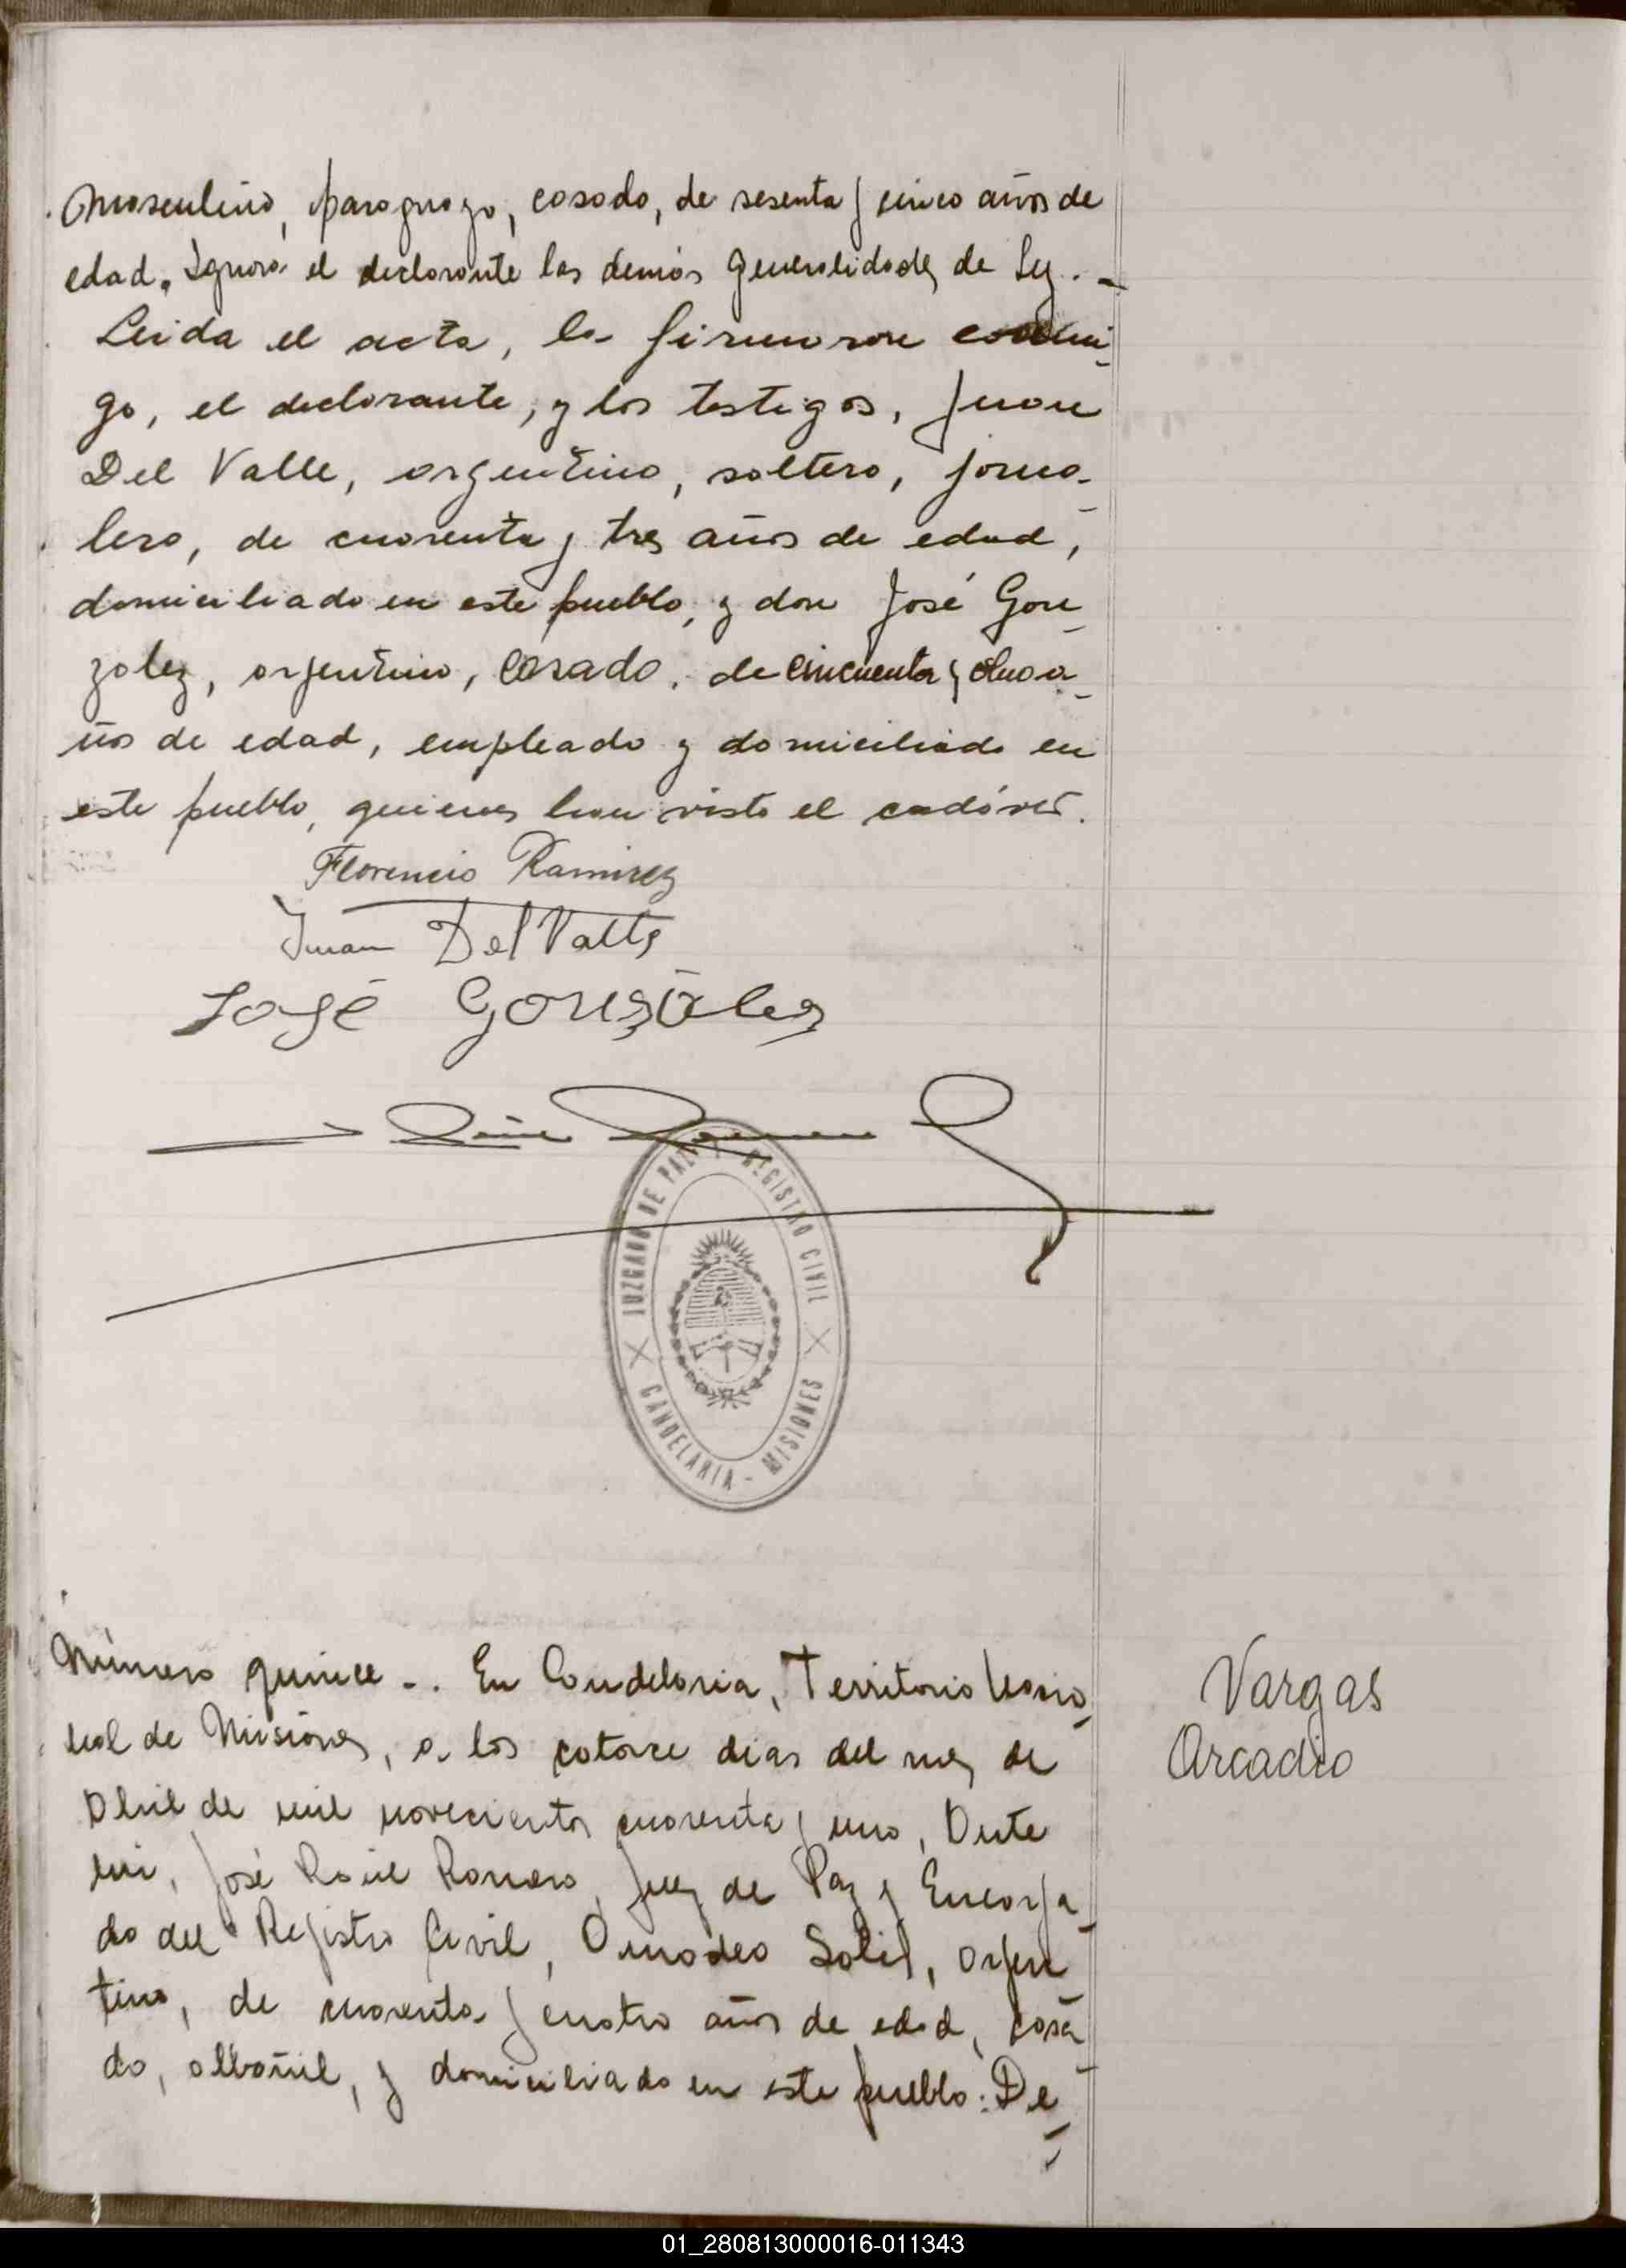 masculino, paraguayo, casado, de sesenta y cinco años de
edad. Ignora el declarante las demás generalidades de Ley. -
Leida el acta, la firmaron conmi-
go, el declarante, y los testigos, Juan
Del Valle, argentino, soltero, jorna-
lero, de cuarenta y tres años de edad,
domiciliado en este pueblo, y don José Gon-
zalez, argentino, casado, de cincuenta y ocho a-
ños de edad, empleado y domiciliado en
este pueblo, quienes han visto el cadáver.
Florencio Ramirez
Juan Del Valle
José Gonsáles
JUZGADO DE PAZ Y REGISTRO CIVIL
CANDELARIA - MISIONES
Número quince -. En Candelaria, Territorio Nacio-
nal de Misiones, a los catorce dias del mes de
Abril de mil novecientos cuarenta y uno, Ante
mi, José Raúl Romero, Juez de Paz y Encarga-
do del Registro Civil, Amadeo Solis, argen-
tino, de cuarenta y cuatro años de edad, casa-
do, albañil, y domiciliado en este pueblo: De-
Vargas
Arcadio
01_280813000016-011343